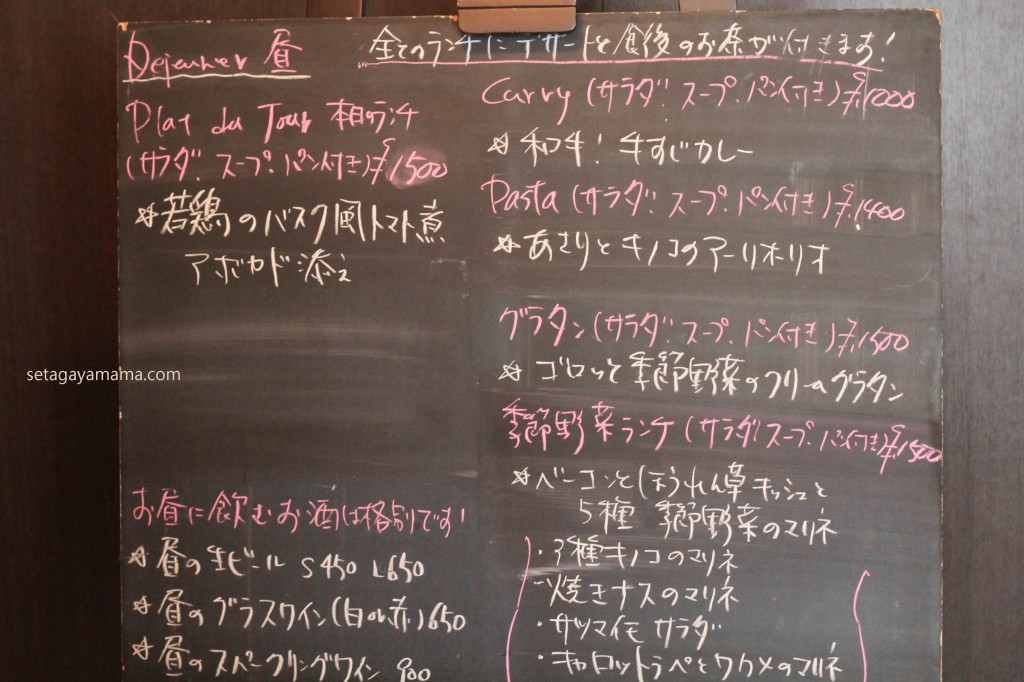 Dejeuner 昼
全てのランチにデザートと食後のお茶が付きます!
Plat du Jour 本日のランチ
(サラダ.スープ.パン付き)¥1500
☆若鶏のバスク風トマト煮
アボカド添え
お昼に飲むお酒は格別です!
☆昼の生ビール S450 L650
☆昼のグラスワイン(白or赤)650
☆昼のスパークリングワイン 900
Curry (サラダ.スープ.パン付き)¥1200
☆和牛!牛すじカレー
Pasta (サラダ.スープ.パン付き)¥1400
☆あさりとキノコのアーリオオーリオ
グラタン(サラダ.スープ.パン付き)¥1500
☆ゴロッと季節野菜のクリームグラタン
季節野菜ランチ(サラダ.スープ.パン付き)¥1500
☆ベーコンとほうれん草キッシュと
5種 季節野菜のマリネ
・3種キノコのマリネ
・焼きナスのマリネ
・サツマイモサラダ
・キャロットラペとワカメのマリネ
setagayamama.com